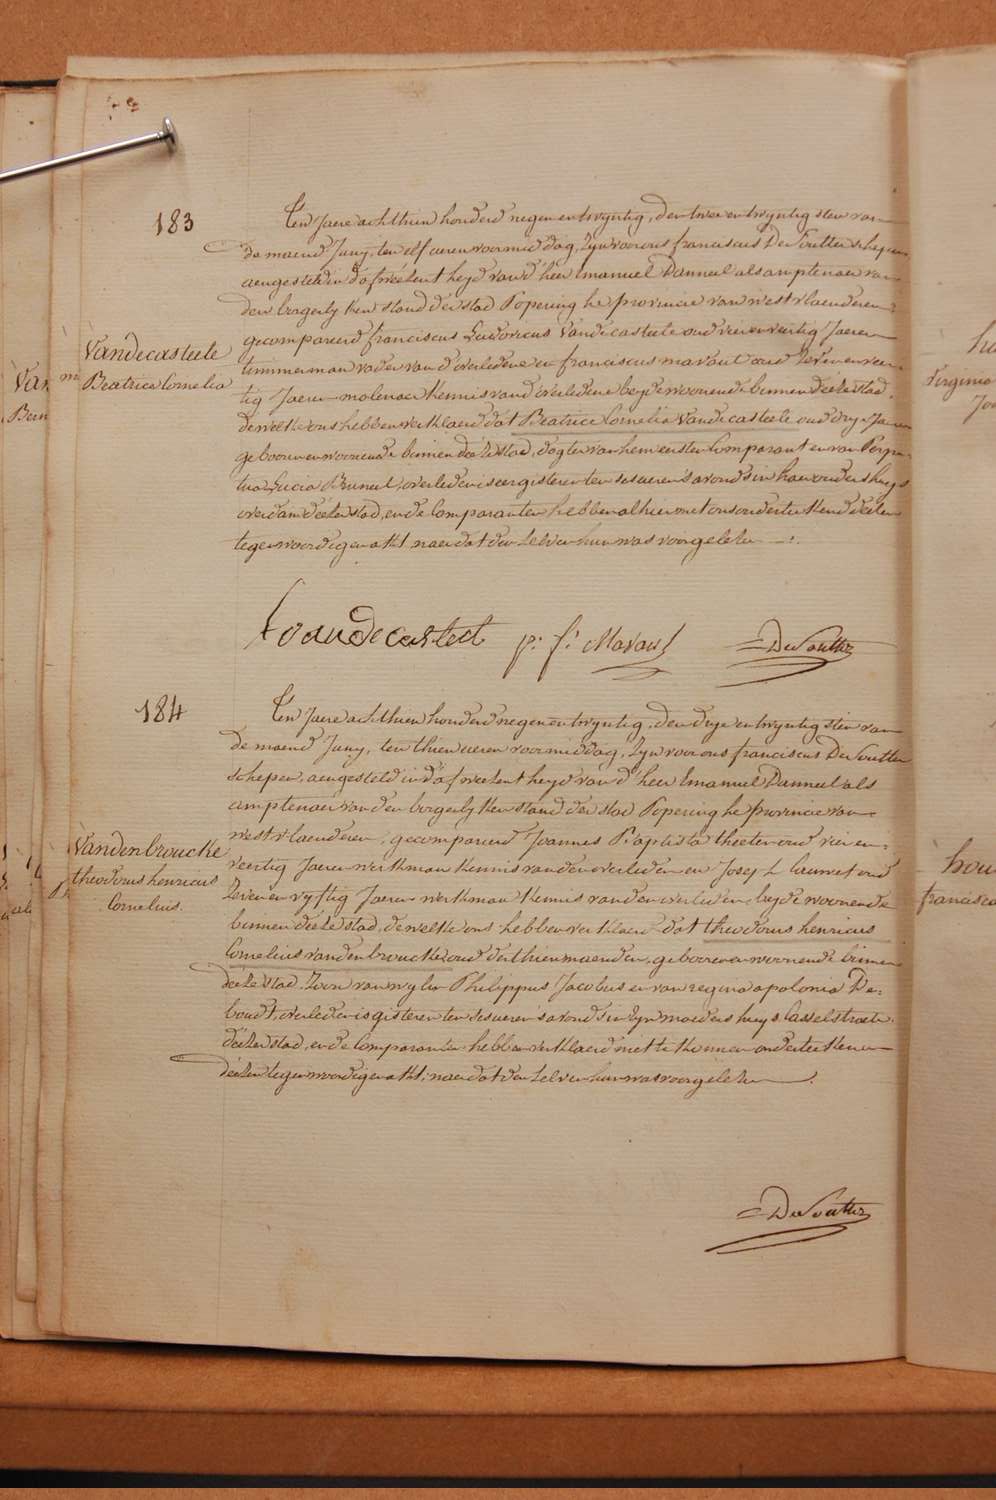 183
Ten Jaere achthien honderd negen en twyntig, den twee en twyntigsten van
de maend Juny, ten elf ueren voormiddag, Zyn voor ons franciscus De Soutter schepen
aengesteld in d'afwezentheyd van d'heer Emanuel Danneel als amptenaer van
den borgerlyken stand der stad Poperinghe provincie van westvlaenderen
gecompareerd franciscus Ludovicus Vandecasteele oud vier en veertig Jaeren
timmerman vader van d'overledene en franciscus maraut oud zeven en veer-
tig Jaeren molenaer kennis van d'overledene beyde woonende binnen deeze stad,
dewelke ons hebben verklaerd dat Beatrice Cornelia Vandecasteele oud dry Jaeren
geboren en woonende binnen deeze stad, dogter van hem eersten Comparant en van Perpe-
tua Lucia Bruneel, overleden is eergisteren ten ses ueren s'avonds in haer ouders huys
overdam deeze stad, en de Comparanten hebben alhier met ons onderteekend deezen
tegenwoordigen akt, naer dat den zelven hun was voorgelezen
Vandecasteele
Beatrice Cornelia
Vandecasteele
p. f. Maraut
De Soutter
184
Ten Jaere achthien honderd negen en twyntig, den drye en twyntigsten van
de maend Juny, ten thien ueren voormiddag, Zyn voor ons franciscus De Soutter
schepen, aengesteld in d'afwezentheyd van d'heer Emanuel Danneel als
amptenaer van den borgerlyken stand der stad Poperinghe provincie van
westvlaenderen, gecompareerd Joannes Baptista theeten oud vier en
veertig Jaeren werkman kennis van den overleden en Joseph Laumet oud
zeven en vyftig Jaeren werkman kennis van den overleden, beyde woonende
binnen deeze stad, dewelke ons hebben verklaerd dat theodorus henricus
Cornelius vandenbroucke, oud derthien maenden, geboren en woonende binnen
deeze stad, Zoon van wylen Philippus Jacobus en van regina apolonia De-
boudt, overleden is gisteren ten ses ueren s'avonds in zyn moeders huys Casselstraete
deezer stad, en de Comparanten hebben verklaerd niet te konnen onderteekenen
deezen tegenwoordigen akt, naer dat den zelven hun was voorgelezen
Vandenbroucke
theodorus henricus
Cornelius.
De Soutter